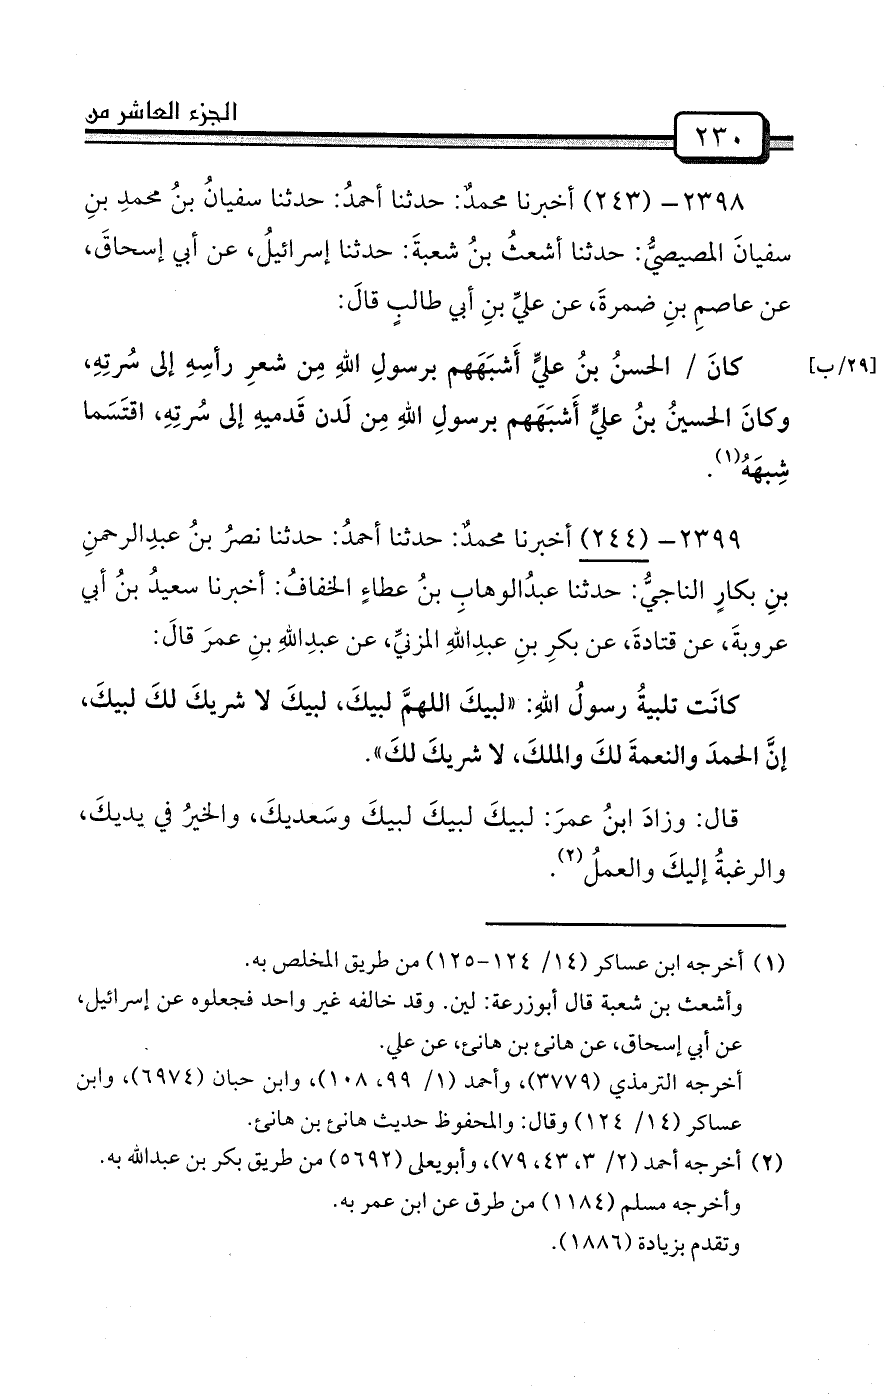 الجزء العاشر من
٢٣٠
٢٣٩٨- (٢٤٣) أخبرنا محمدٌ: حدثنا أحمدُ: حدثنا سفيانُ بنُ محمدِ بنِ
سفيانَ المصيصيُّ: حدثنا أشعثُ بنُ شعبةَ: حدثنا إسرائيلُ، عن أبي إسحاقَ،
عن عاصمِ بنِ ضمرةَ، عن عليِّ بنِ أبي طالبٍ قالَ:
كانَ / الحسنُ بنُ عليٍّ أَشبَهَهم برسولِ اللهِ مِن شعرِ رأسِهِ إلى سُرتِهِ، [٢٩/ب]
وكانَ الحسينُ بنُ عليٍّ أَشبَهَهم برسولِ اللهِ مِن لَدن قَدميهِ إلى سُرتِهِ، اقتَسَما
شِبهَهُ(١).
٢٣٩٩- (٢٤٤) أخبرنا محمدٌ: حدثنا أحمدُ: حدثنا نصرُ بنُ عبدِالرحمنِ
بنِ بكارٍ الناجيُّ: حدثنا عبدُالوهابِ بنُ عطاءٍ الخفافُ: أخبرنا سعيدُ بنُ أبي
عروبةَ، عن قتادةَ، عن بكرِ بنِ عبدِاللهِ المزنيِّ، عن عبدِاللهِ بنِ عمرَ قالَ:
كانَت تلبيةُ رسولُ اللهِ: «لبيكَ اللهمَّ لبيكَ، لبيكَ لا شريكَ لكَ لبيكَ،
إنَّ الحمدَ والنعمةَ لكَ والملكَ، لا شريكَ لكَ».
قال: وزادَ ابنُ عمرَ: لبيكَ لبيكَ لبيكَ وسَعديكَ، والخيرُ في يديكَ،
والرغبةُ إليكَ والعملُ(٢).
(١) أخرجه ابن عساكر (١٤/ ١٢٤-١٢٥) من طريق المخلص به.
وأشعث بن شعبة قال أبوزرعة: لين. وقد خالفه غير واحد فجعلوه عن إسرائيل،
عن أبي إسحاق، عن هانئ بن هانئ، عن علي.
أخرجه الترمذي (٣٧٧٩)، وأحمد (١/ ٩٩، ١٠٨)، وابن حبان (٦٩٧٤)، وابن
عساكر (١٤/ ١٢٤) وقال: والمحفوظ حديث هانئ بن هانئ.
(٢) أخرجه أحمد (٢/ ٣، ٤٣، ٧٩)، وأبويعلى (٥٦٩٢) من طريق بكر بن عبدالله به.
وأخرجه مسلم (١١٨٤) من طرق عن ابن عمر به.
وتقدم بزيادة (١٨٨٦).